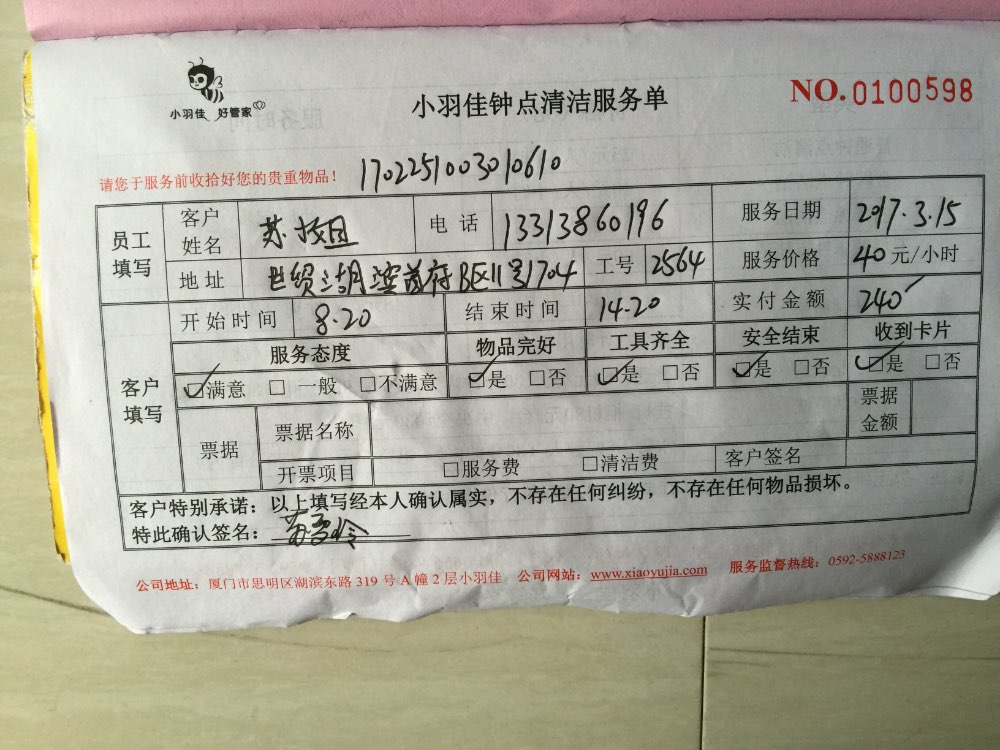 小羽佳 好管家
小羽佳钟点清洁服务单
NO.0100598
请您于服务前收拾好您的贵重物品！ 1702251003010610
员工填写 客户姓名 苏 电话 13313860196 服务日期 2017.3.15
地址 世贸湖滨首府B区11号1704 工号 2564 服务价格 40元/小时
客户填写 开始时间 8.20 结束时间 14.20 实付金额 240
服务态度 物品完好 工具齐全 安全结束 收到卡片
☑满意 □ 一般 □不满意 ☑是 □否 ☑是 □否 ☑是 □否 ☑是 □否
票据 票据名称 票据金额
开票项目 □服务费 □清洁费 客户签名
客户特别承诺：以上填写经本人确认属实，不存在任何纠纷，不存在任何物品损坏。
特此确认签名：
公司地址：厦门市思明区湖滨东路 319 号 A 幢 2 层小羽佳 公司网站：www.xiaoyujia.com 服务监督热线：0592-5888123